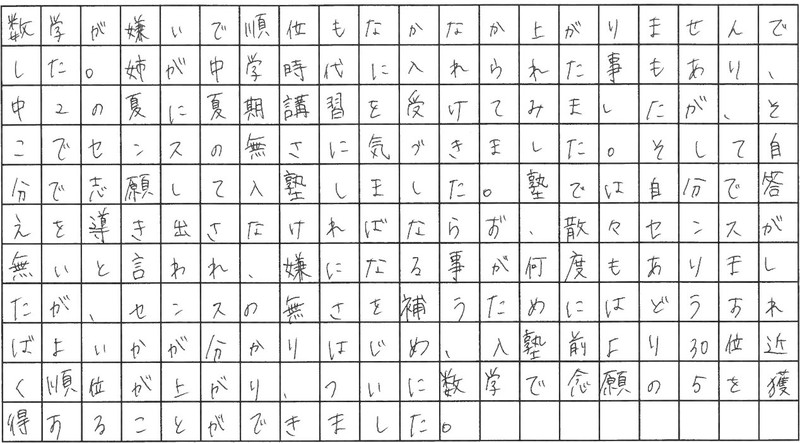 数学が嫌いで順位もなかなか上がりませんで
した。姉が中学時代に入れられた事もあり、
中2の夏に夏期講習を受けてみましたが、そ
こでセンスの無さに気づきました。そして自
分で志願して入塾しました。塾では自分で答
えを導き出さなければならず、散々センスが
無いと言われ、嫌になる事が何度もありまし
たが、センスの無さを補うためにはどうすれ
ばよいかが分かりはじめ、入塾前より30位近
く順位が上がり、ついに数学で念願の5を獲
得することができました。